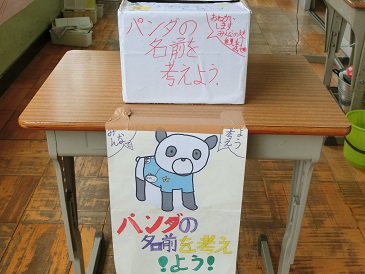 パンダの
名前を
考えよう。
おねがい
します
みんなで
考え
よう
パンダの
名前を考え
！よう！